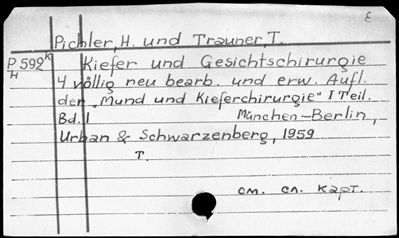 ε
Pichler, H. und Trauner, T.
P 592 k
H
Kiefer und Gesichtschirurgie
4 völlig neu bearb. und erw. Aufl.
der „Mund und Kieferchirurgie" I Teil.
Bd. I München-Berlin,
Urban & Schwarzenberg, 1959
T.
см. сл. карт.